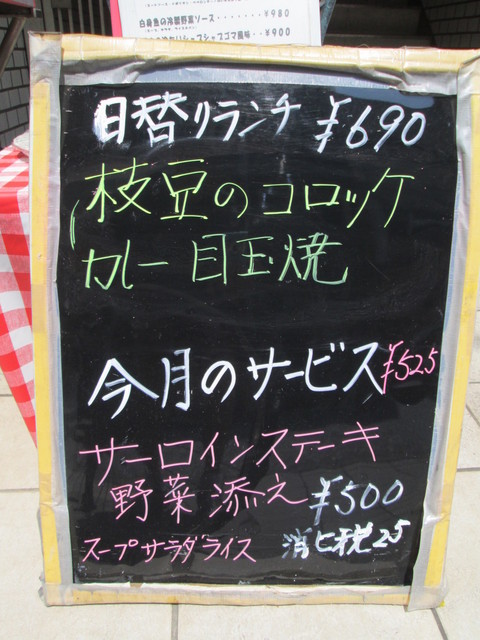 白身魚の冷製野菜ソース・・・・・・・¥980
ゴマ風味・・¥900
日替リランチ ¥690
枝豆のコロッケ
カレー 目玉焼
今月のサービス ¥525
サーロインステーキ
野菜添え ¥500
スープサラダライス 消ヒ税25